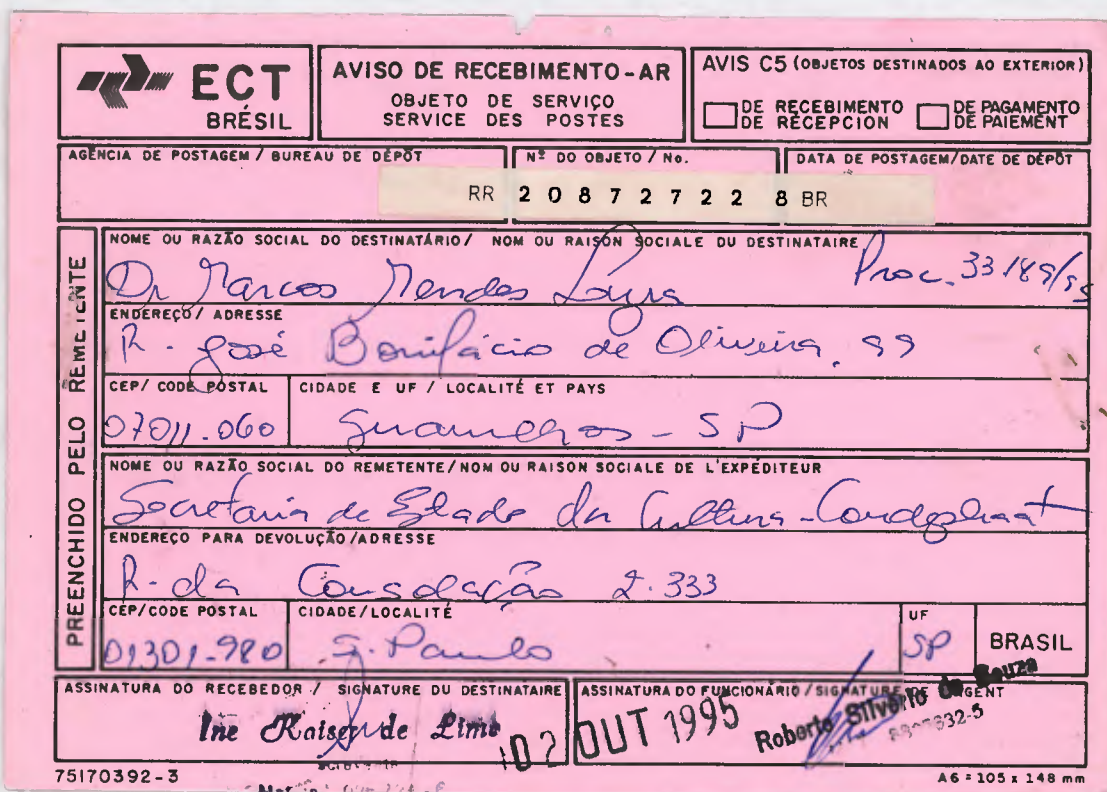 ECT
BRÉSIL
AVISO DE RECEBIMENTO-AR
OBJETO DE SERVIÇO
SERVICE DES POSTES
AVIS C5 (OBJETOS DESTINADOS AO EXTERIOR)
DE RECEBIMENTO
DE RÉCEPCION
DE PAGAMENTO
DE PAIEMENT
AGÊNCIA DE POSTAGEM / BUREAU DE DÉPÔT
Nº DO OBJETO / No.
DATA DE POSTAGEM/DATE DE DÉPÔT
RR 2 0 8 7 2 7 2 2 8 BR
PREENCHIDO PELO REMETENTE
NOME OU RAZÃO SOCIAL DO DESTINATÁRIO / NOM OU RAISON SOCIALE DU DESTINATAIRE
Dr Marcos Mendes Proc. 33189/95
ENDEREÇO / ADRESSE
R. José Bonifácio de Oliveira, 99
CEP/ CODE POSTAL
CIDADE E UF / LOCALITÉ ET PAYS
07011.060
Guarulhos - SP
NOME OU RAZÃO SOCIAL DO REMETENTE/NOM OU RAISON SOCIALE DE L'EXPÉDITEUR
Secretaria de Estado da Cultura - Condephaat
ENDEREÇO PARA DEVOLUÇÃO/ADRESSE
R. da Consolação 2.333
CEP/CODE POSTAL
CIDADE/LOCALITÉ
UF
01301-980
S. Paulo
SP
BRASIL
ASSINATURA DO RECEBEDOR / SIGNATURE DU DESTINATAIRE
ASSINATURA DO FUNCIONÁRIO / SIGNATURE DE L'AGENT
Ine Kaiser de Lima
02 OUT 1995
Roberto Silvério de Souza
75170392-3
A6 = 105 x 148 mm